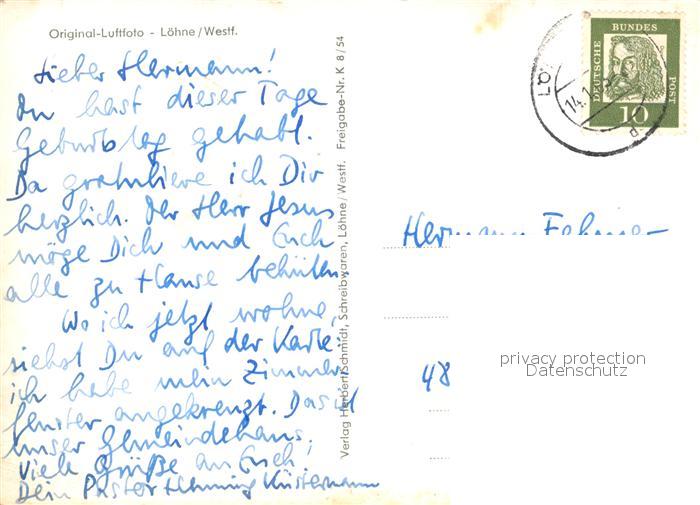 Original-Luftfoto - Löhne/Westf.
Lieber Hermann!
Du hast dieser Tage
Geburtstag gehabt.
Da gratuliere ich Dir
herzlich. Der Herr Jesus
möge Dich und Euch
alle zu Hause behüten.
Wo ich jetzt wohne,
siehst Du auf der Karte:
ich habe mein Zimmer-
fenster angekreuzt. Das ist
unser Gemeindehaus,
Viele Grüße an Euch,
Dein Pastor Henning Küstermann
Verlag Herbert Schmidt, Schreibwaren, Löhne/Westf. Freigabe-Nr. K 8/54
DEUTSCHE
BUNDES
POST
10
14.1
Hermann
48
privacy protection
Datenschutz